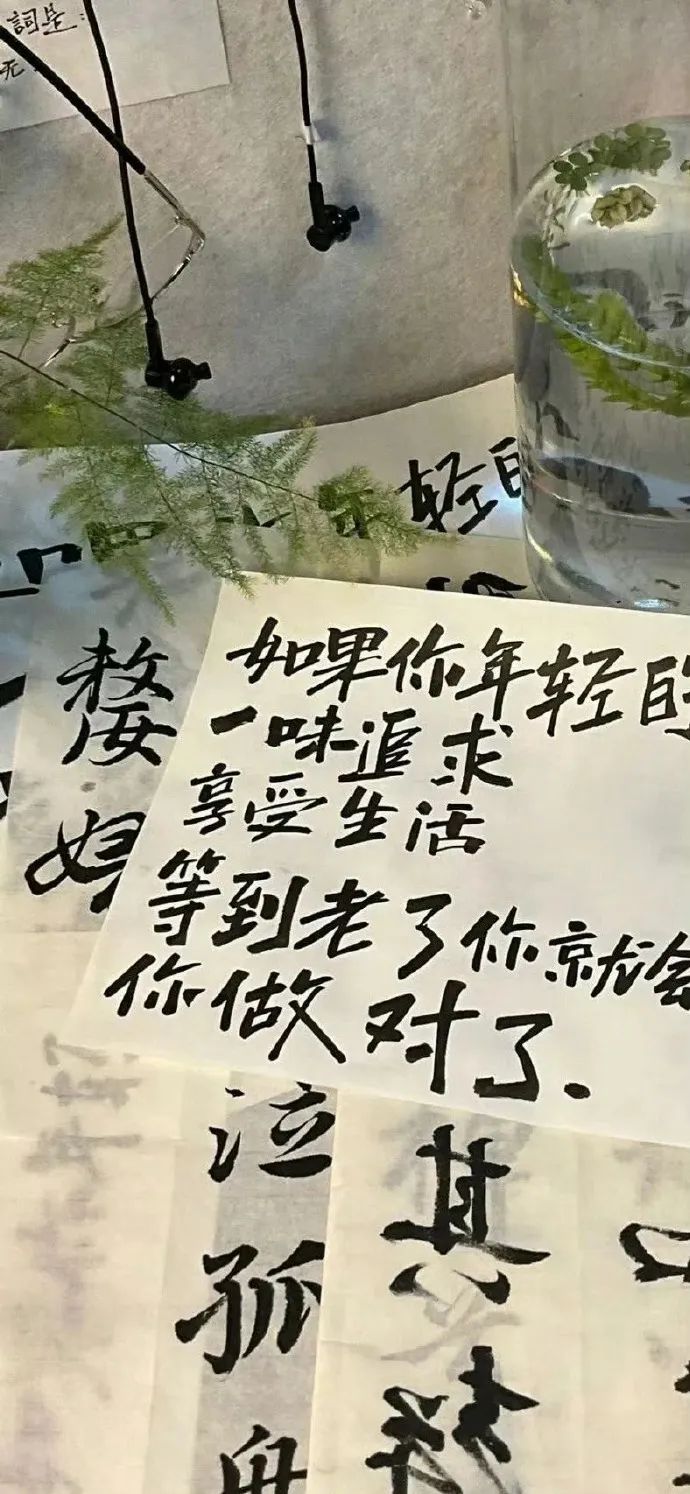 詞是:
无
轻
嫠
如果你年轻的
一味追求
享受生活
等到老了你就会
你做对了.
泣
孤
舟
其